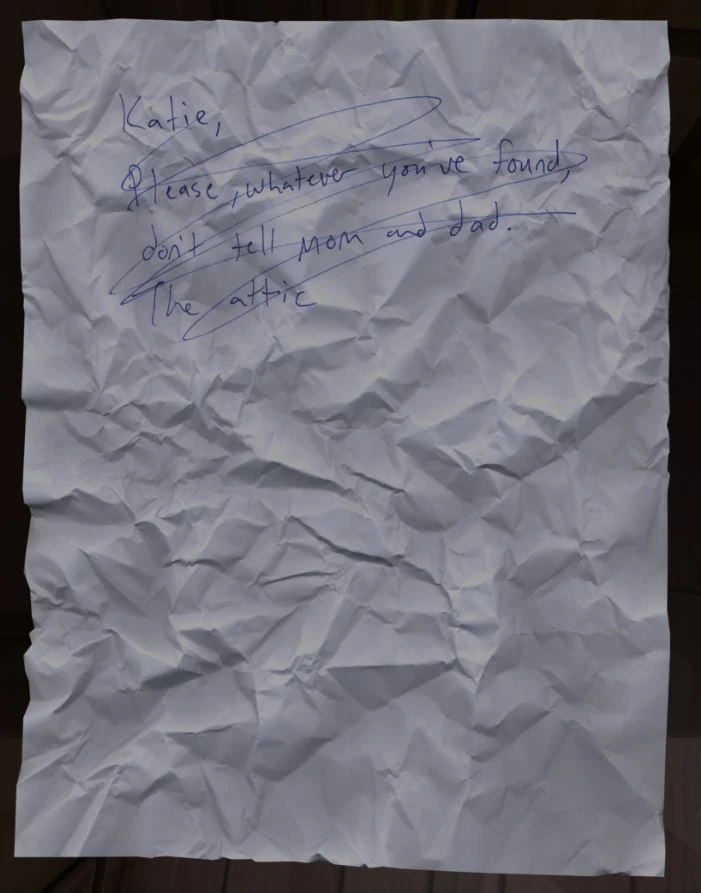 Katie,
Please, whatever you've found,
don't tell Mom and dad.
The attic